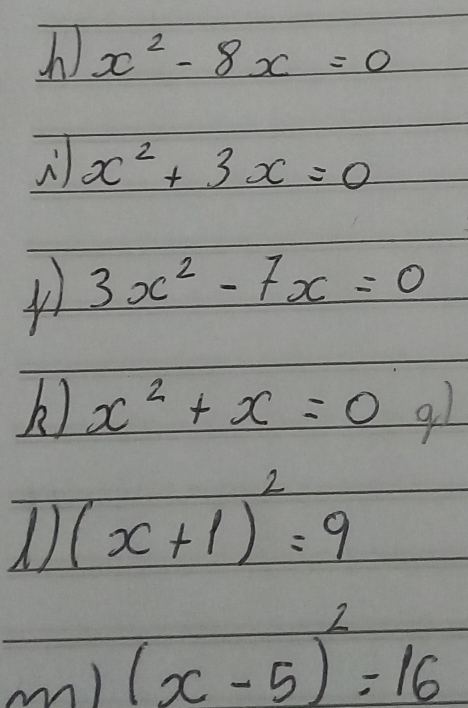 h) x² - 8x = 0
i) x² + 3x = 0
j) 3x² - 7x = 0
k) x² + x = 0 q)
l) (x+1)² = 9
m) (x-5)² = 16